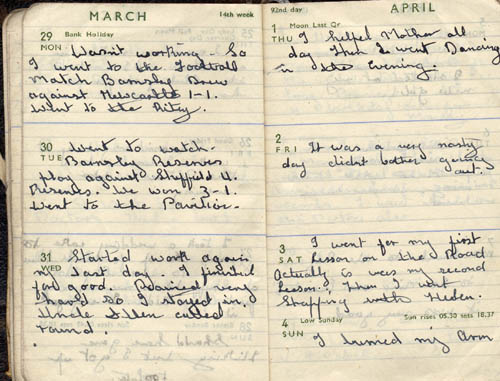 MARCH 14th week
29 Bank Holiday
MON Wasn't working - So
I went to the Football
Match Barnsley Drew
against Newcastle 1-1.
Went to the Ritz.
30 Went to watch.
TUE Barnsley Reserves
play against Sheffield U.
Reserves. We won 3-1.
Went to the Pavilion.
31 Started work again
WED my last day. I finished
for good. Rained very
hard so I stayed in.
Uncle Allen called
round.
92nd day APRIL
1 Moon Last Qr
THU I helped Mother all
day then I went Dancing
in the Evening.
2
FRI It was a very nasty
day didn't bother going
out.
3 I went for my first
SAT lesson on the Road
Actually it was my second
lesson. Then I went
Shopping with Helen.
4 Low Sunday Sun rises 05.30 sets 18.37
SUN I burned my arm